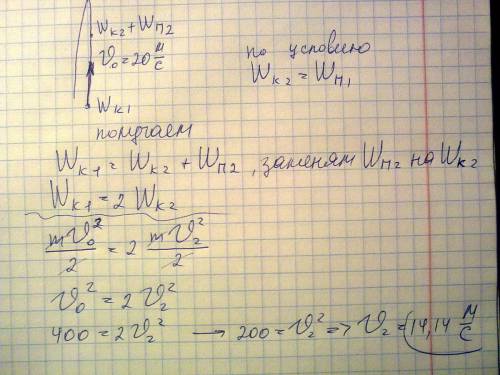 Wк2 + Wп2
V₀ = 20 м/с
Wк1
по условию
Wк2 = Wп1
получаем
Wк1 = Wк2 + Wп2, заменям Wп2 на Wк2
Wк1 = 2 Wк2
mV₀²/2 = 2 mV₂²/2
V₀² = 2 V₂²
400 = 2V₂² → 200 = V₂² => V₂ = 14,14 м/с